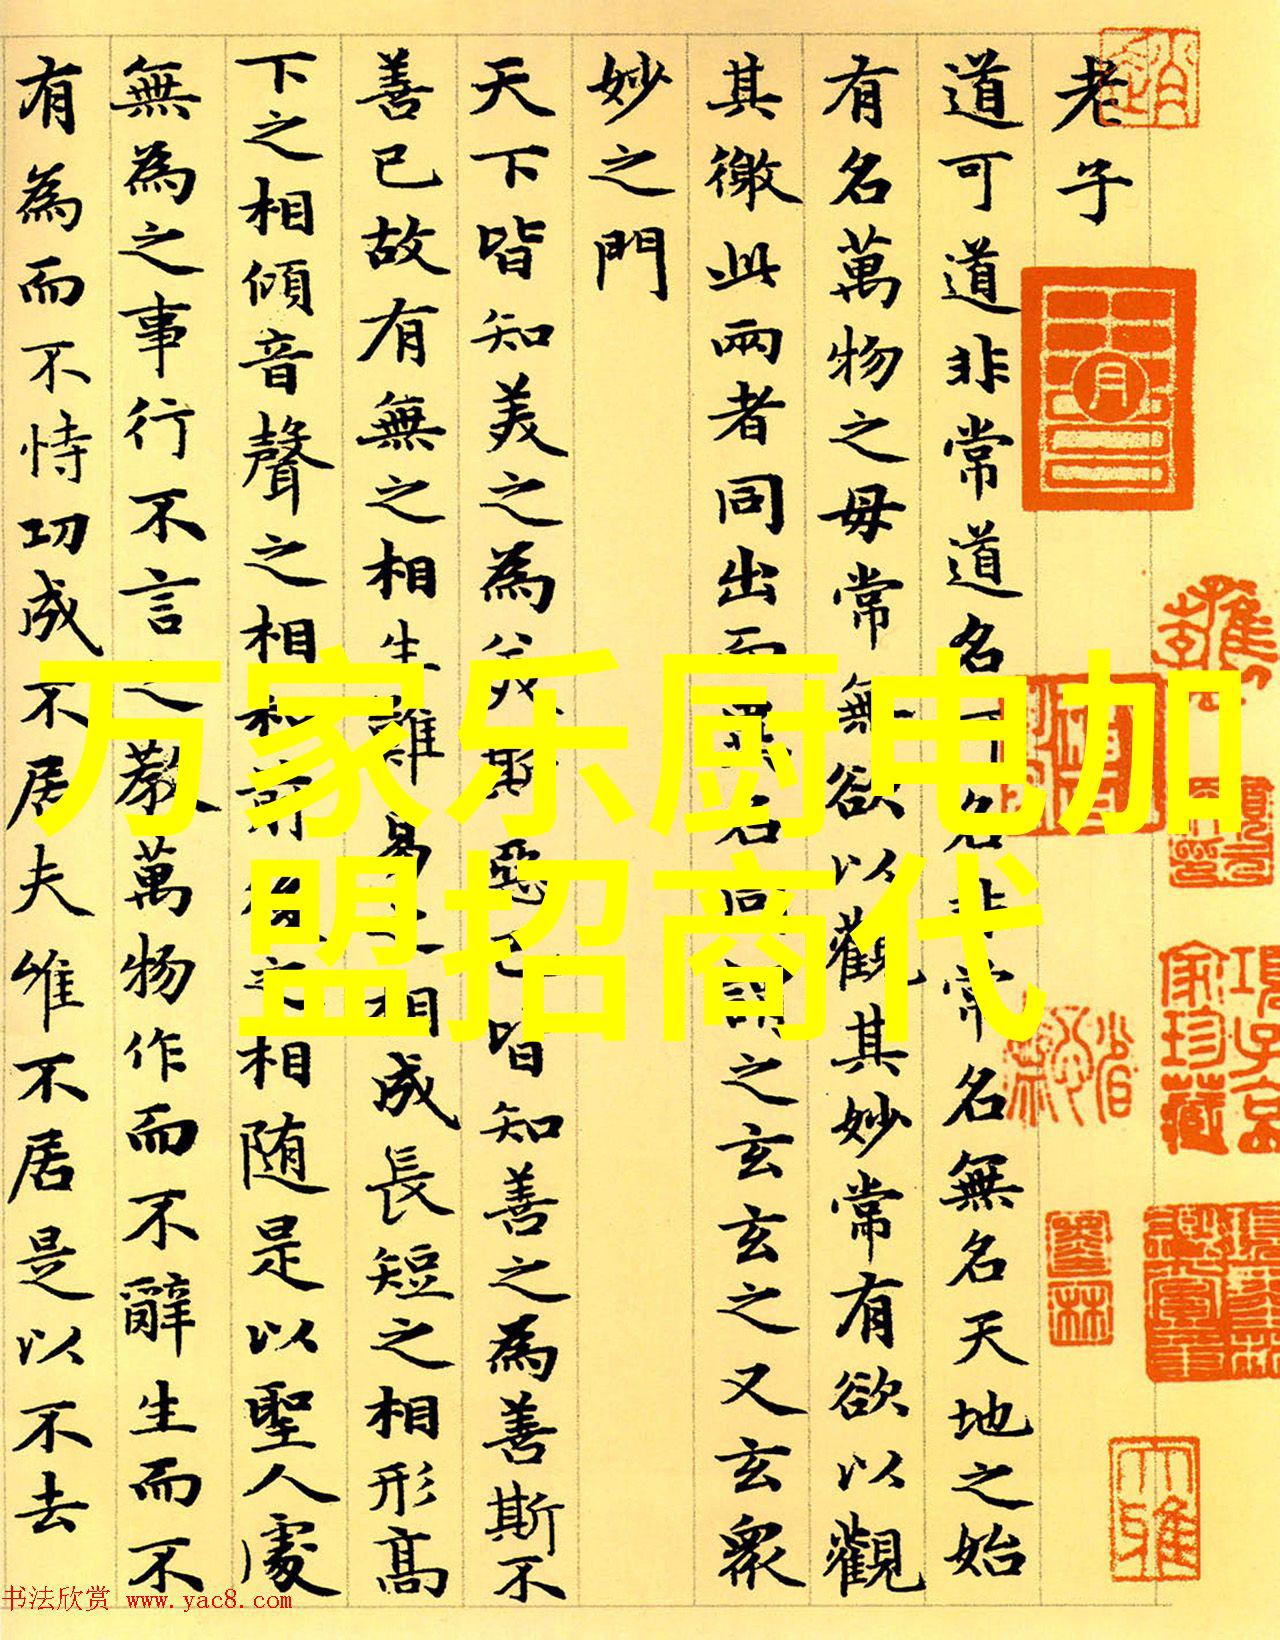 老子
道可道非常道名可名非常名無名天地之始
有名萬物之母常無欲以觀其妙常有欲以觀
其徼此兩者同出而異名同謂之玄玄之又玄衆
妙之門
天下皆知美之為美斯惡已皆知善之為善斯不
善已故有無之相生難易之相成長短之相形高
下之相傾音聲之相和前後之相随是以聖人處
無為之事行不言之教萬物作而不辭生而不
有為而不恃功成不居夫唯不居是以不去
項子京
家珍藏
大雅
万家乐厨电加
盟招商代
书法欣赏 www.yac8.com